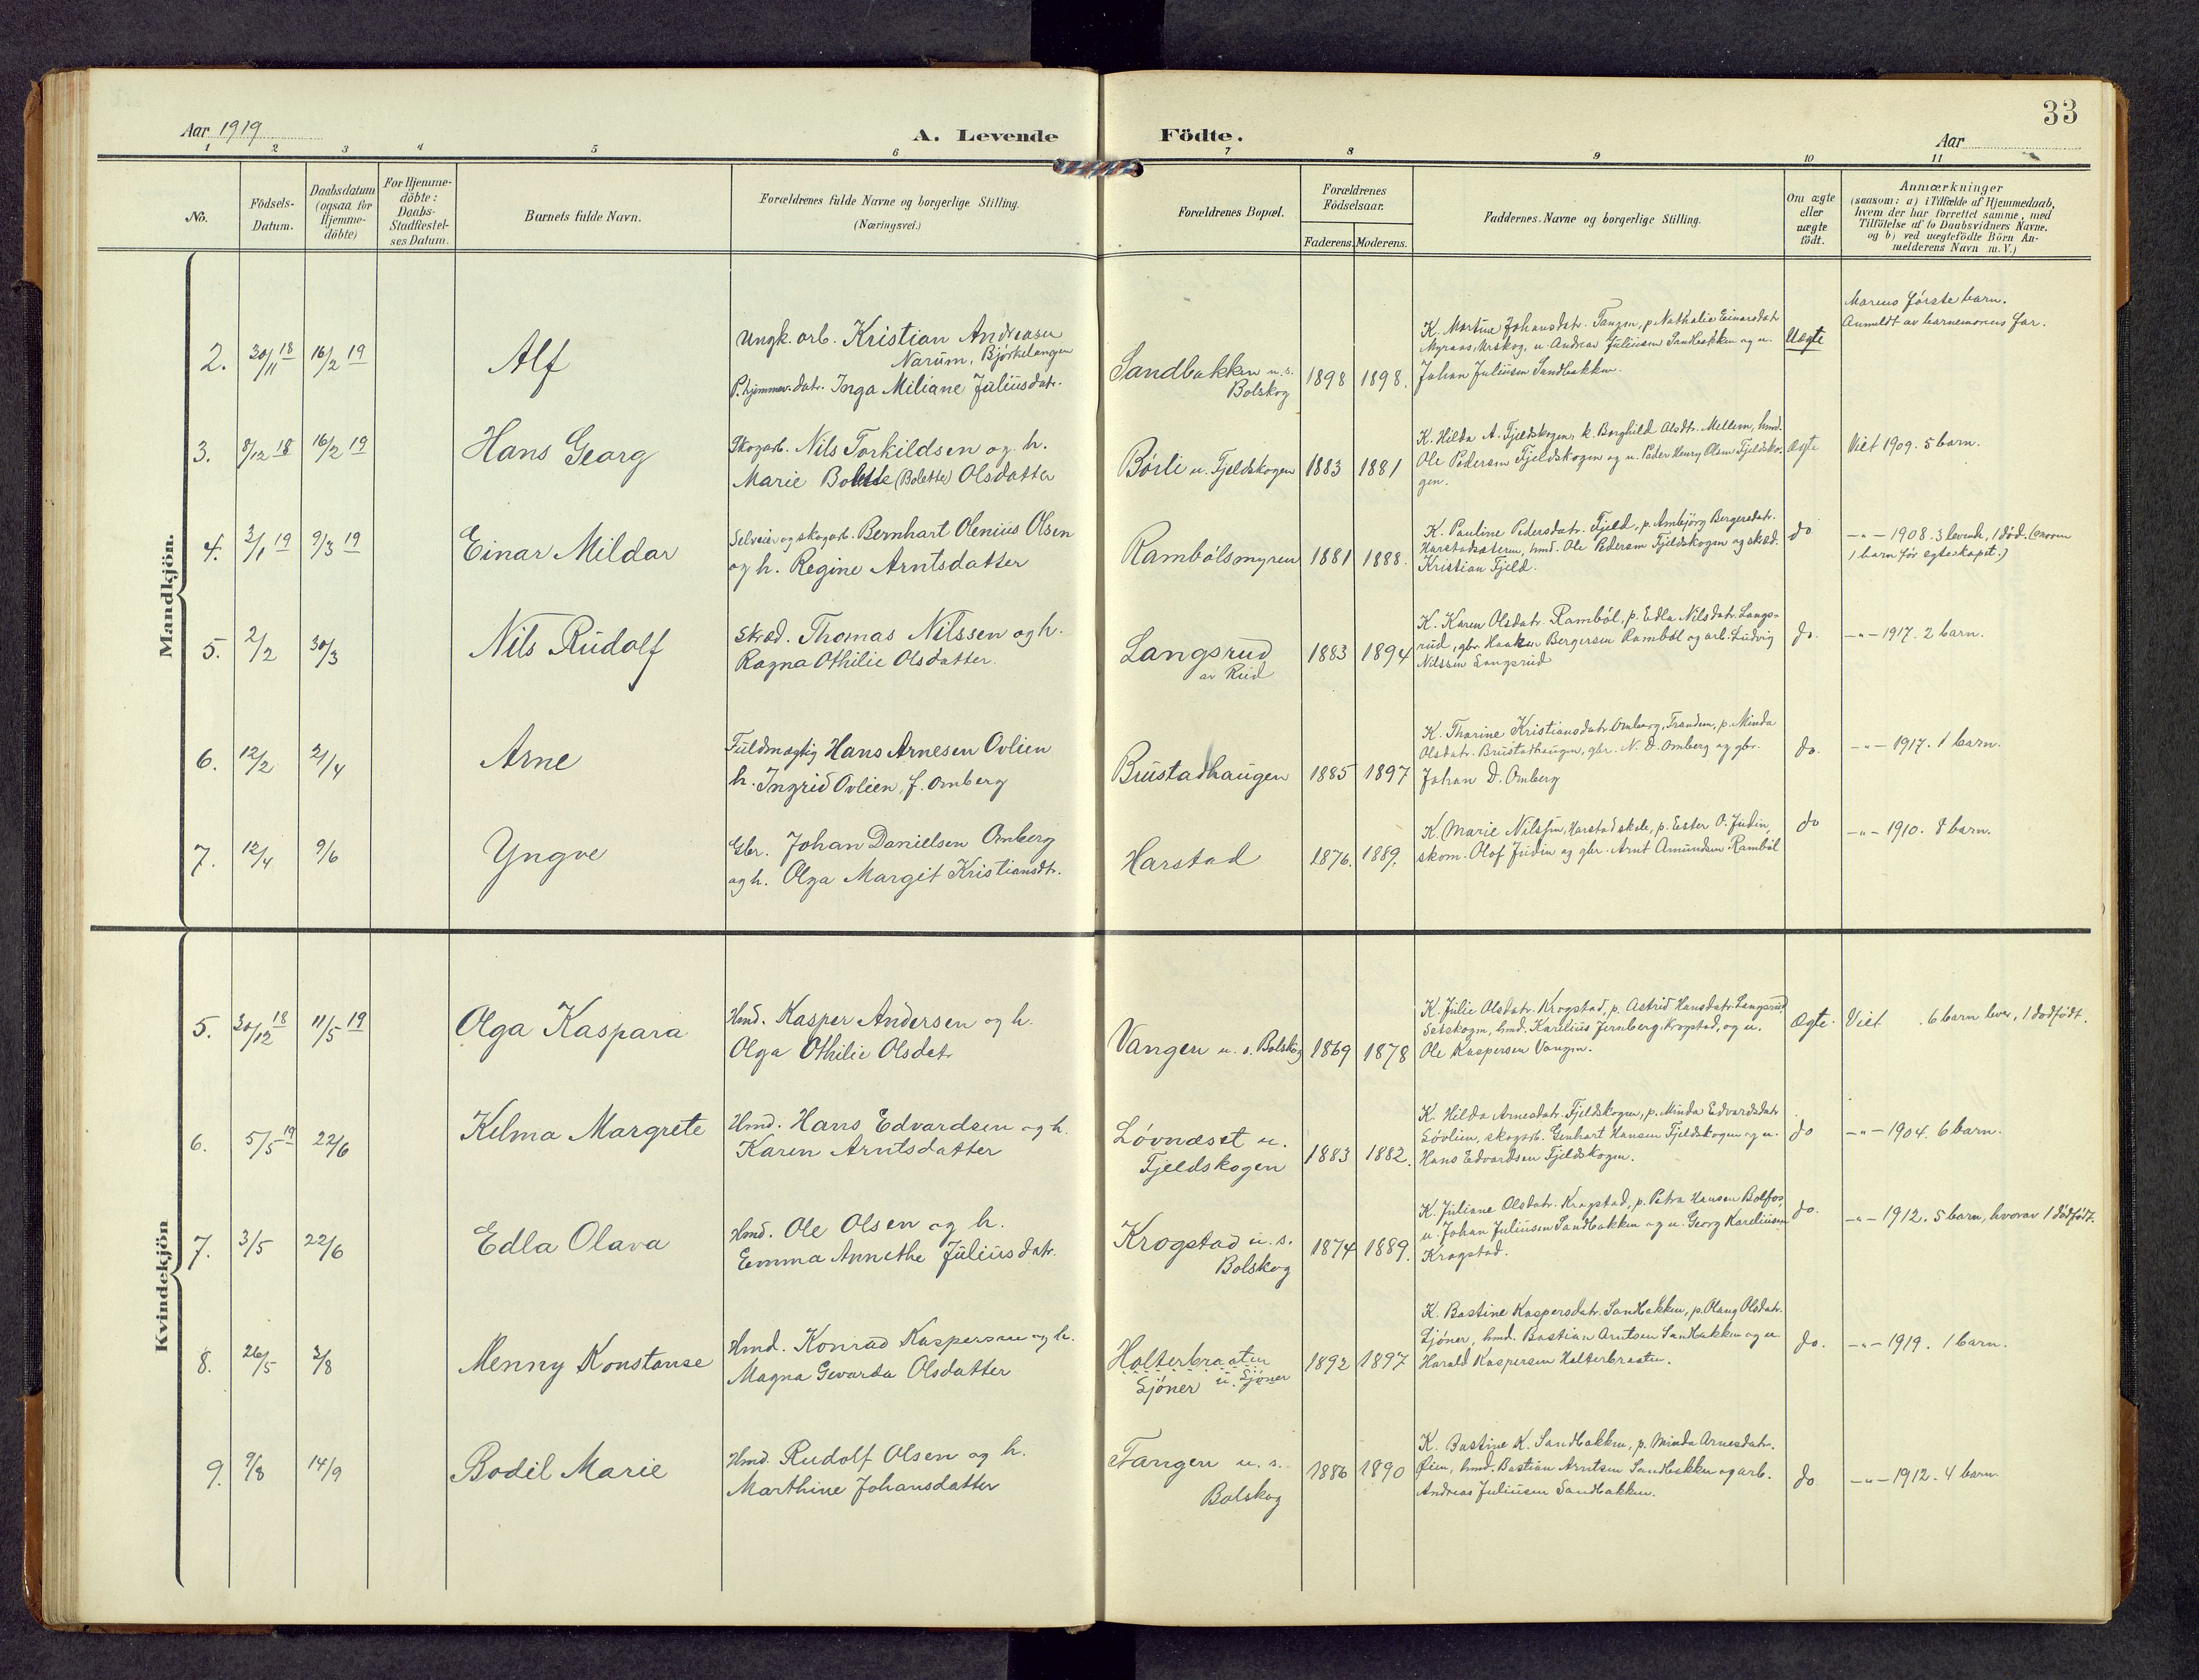 33
Aar 1919
A. Levende Födte.
Aar
1 2 3 4 5 6 7 8 9 10 11
No.
Födsels-Datum.
Daabsdatum (ogsaa for Hjemme-döbte)
For Hjemme-döbte: Daabs-Stadfæstel-ses Datum.
Barnets fulde Navn.
Forældrenes fulde Navne og borgerlige Stilling. (Næringsvei.)
Forældrenes Bopæl.
Forældrenes Födselsaar.
Faderens. Moderens.
Faddernes Navne og borgerlige Stilling.
Om ægte eller uægte födt.
Anmærkninger
(saasom: a) i Tilfælde af Hjemmedaab,
hvem der har forrettet samme, med
Tilföielse af to Daabsvidners Navne.
og b) ved uægtefödte Börn An-
melderens Navn m. V.)
Mandkjön.
2. 30/11 18 16/2 19 Alf
Ungk. arb. Kristian Andreasen
Narum, Bjørkelangen
P. hjemmev. datr. Inga Miliane Juliusdatr.
Sandbakken u. s.
Bolskog
1898 1898.
K. Martine Johansdatr. Tangen, p. Nathalie Einarsdatr
Myraas, Urskog, u. Andreas Juliusen Sandbakken og u.
Johan Juliusen Sandbakken.
Uegte
Morens første barn.
Anmeldt av barnemorens far.
3. 8/12 18 16/2 19 Hans Georg
Skogarb. Nils Torkildsen og h.
Marie Bolette (Bolette) Olsdatter
Børli u. Fjeldskogen
1883 1881
K. Hilda A. Fjeldskogen, k. Borghild Olsdtr. Mellem, hmd.
Ole Pedersen Fjeldskogen og u. Peder Henry Olsen Fjeldsko-
gen.
Ægte
Viet 1909. 5 barn.
4. 3/1 19 9/3 19 Einar Mildar
Selveier og skogarb. Bernhart Olenius Olsen
og h. Regine Arntsdatter
Rambølsmyren
1881 1888.
K. Pauline Pedersdatr. Fjeld, p. Ambjørg Bergersdatr.
Harstadsæteren, hmd. Ole Pedersen Fjeldskogen og skræd.
Kristian Fjeld.
do
-"- 1908. 3 levende, 1 død. (
1 barn før egteskapet.)
5. 2/2 30/3 Nils Rudolf
Skræd. Thomas Nilssen og h.
Ragna Othilie Olsdatter.
Langsrud
av Rud
1883 1894
K. Karen Olsdatr. Rambøl, p. Edla Nilsdatr. Langs-
rud, gbr. Haaken Bergersen Rambøl og arb. Ludvig
Nilssen Langsrud
do.
-"- 1917. 2 barn.
6. 12/2 21/4 Arne
Fuldmægtig Hans Arnesen Ovlien
h. Ingrid Ovlien, f. Omberg
Brustadhaugen
1885 1897
K. Thorine Kristiansdatr. Omberg, Trandem, p. Minda
Olsdatr. Brustadhaugen, gbr. N. D. Omberg og gbr.
Johan D. Omberg
do.
-"- 1917. 1 barn.
7. 12/4 9/6 Yngve
Gbr. Johan Danielsen Omberg
og h. Olga Margit Kristiansdtr.
Harstad
1876. 1889.
K. Marie Nilssen, Harstad skole, p. Ester O. Judin,
skom. Olof Judin og gbr. Arnt Amundsen Rambøl
do
-"- 1910. 8 barn.
Kvindekjön
5. 30/12 18 11/5 19 Olga Kaspara
Hmd. Kasper Andersen og h.
Olga Othilie Olsdatr
Vangen u. s. Bolskog
1869 1878
K. Julie Olsdatr. Krogstad, p. Astrid Hansdatr. Langsrud,
Setskogen, hmd. Karelius Jernberg Krogstad, og u.
Ole Kaspersen Vangen.
Ægte.
Viet . 6 barn lever, 1 dødfødt.
6. 5/5 19 22/6 Kelma Margrete
Hmd. Hans Edvardsen og h.
Karen Arntsdatter
Løvnæset u.
Fjeldskogen
1883 1882.
K. Hilda Arnesdatr. Fjeldskogen, p. Minda Edvardsdatr
Løvlien, skogarb. Genhart Hansen Fjeldskogen og u.
Hans Edvardsen Fjeldskogen.
do
-"- 1904. 6 barn.
7. 3/5 22/6 Edla Olava
Hmd. Ole Olsen og h.
Emma Annethe Juliusdatr.
Krogstad u. s.
Bolskog
1874 1889.
K. Juliane Olsdatr. Krogstad, p. Petra Hansen Bolfos,
u. Johan Juliusen Sandbakken og u. Georg Kareliusen
Krogstad.
do.
-"- 1912. 5 barn, hvorav 1 dødfødt.
8. 26/5 3/8 Menny Konstanse
Hmd. Konrad Kaspersen og h.
Magna Gevarda Olsdatter
Holterbraaten
Sjøner u. Sjøner
1892 1897
K. Bastine Kaspersdatr. Sandbakken, p. Olaug Olsdatr.
Sjøner, hmd. Bastian Arntsen Sandbakken og u.
Harald Kaspersen Holterbraaten.
do.
-"- 1919. 1 barn.
9. 9/8 14/9 Bodil Marie
Hmd. Rudolf Olsen og h.
Marthine Johansdatter
Tangen u. s.
Bolskog
1886 1890
K. Bastine K. Sandbakken, p. Minda Arnesdatr.
Øien, hmd. Bastian Arntsen Sandbakken og arb.
Andreas Juliusen Sandbakken.
do
-"- 1912. 4 barn.